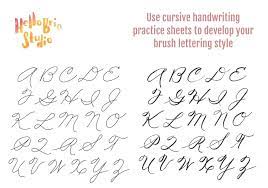 Hello Brio
Studio
Use cursive handwriting
practice sheets to develop your
brush lettering style
A B C D E F
G H I J K
L M N O
P Q R S T
U V W X Y Z
A B C D E F
G H I J K
L M N O
P Q R S T
U V W X Y Z